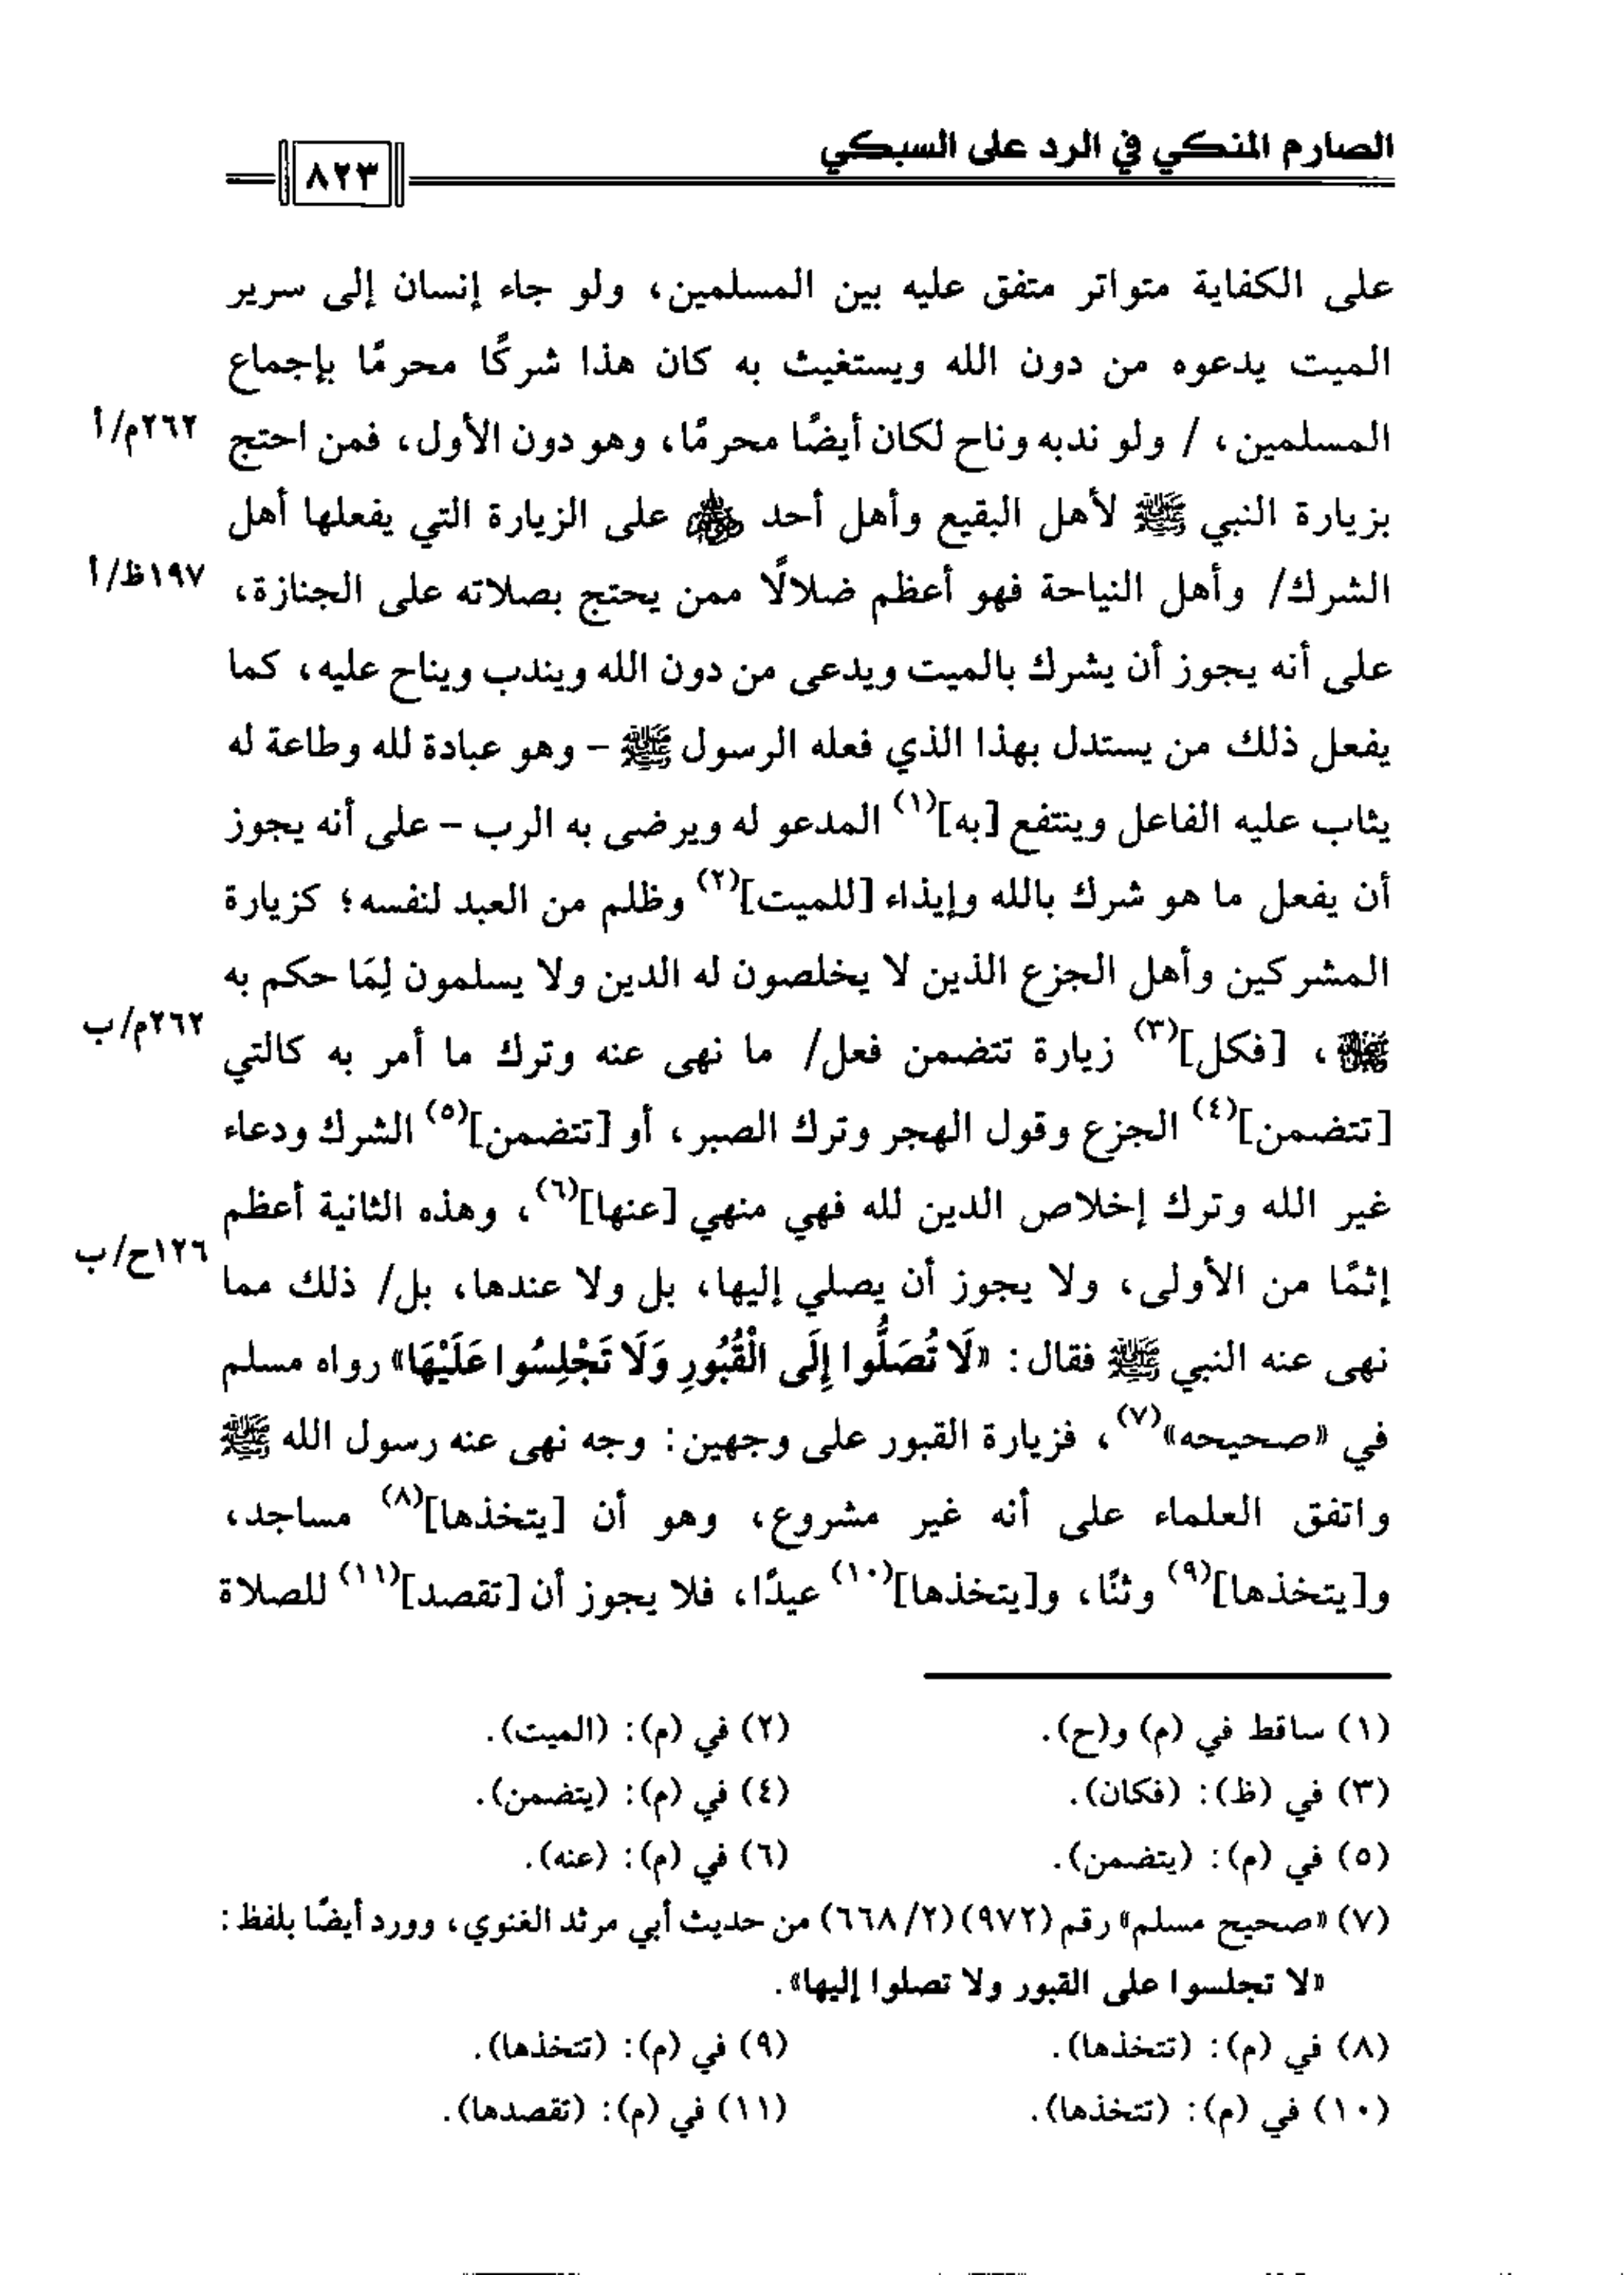 الصارم المنكي في الرد على السبكي
٨٢٣
على الكفاية متواتر متفق عليه بين المسلمين، ولو جاء إنسان إلى سرير
الميت يدعوه من دون الله ويستغيث به كان هذا شركًا محرمًا بإجماع
المسلمين، / ولو ندبه وناح لكان أيضًا محرمًا، وهو دون الأول، فمن احتج
٢٦٢م/أ
بزيارة النبي ﷺ لأهل البقيع وأهل أحد على الزيارة التي يفعلها أهل
الشرك/ وأهل النياحة فهو أعظم ضلالًا ممن يحتج بصلاته على الجنازة،
١٩٧ظ/أ
على أنه يجوز أن يشرك بالميت ويدعى من دون الله ويندب ويناح عليه، كما
يفعل ذلك من يستدل بهذا الذي فعله الرسول ﷺ - وهو عبادة لله وطاعة له
يثاب عليه الفاعل وينتفع [به](١) المدعو له ويرضى به الرب - على أنه يجوز
أن يفعل ما هو شرك بالله وإيذاء [للميت](٢) وظلم من العبد لنفسه؛ كزيارة
المشركين وأهل الجزع الذين لا يخلصون له الدين ولا يسلمون لِمَا حكم به
ﷺ، [فكل](٣) زيارة تتضمن فعل/ ما نهى عنه وترك ما أمر به كالتي
٢٦٢م/ب
[تتضمن](٤) الجزع وقول الهجر وترك الصبر، أو [تتضمن](٥) الشرك ودعاء
غير الله وترك إخلاص الدين لله فهي منهي [عنها](٦)، وهذه الثانية أعظم
إثمًا من الأولى، ولا يجوز أن يصلي إليها، بل ولا عندها، بل/ ذلك مما
١٢٦ح/ب
نهى عنه النبي ﷺ فقال: «لَا تُصَلُّوا إِلَى الْقُبُورِ وَلَا تَجْلِسُوا عَلَيْهَا» رواه مسلم
في «صحيحه»(٧)، فزيارة القبور على وجهين: وجه نهى عنه رسول الله ﷺ
واتفق العلماء على أنه غير مشروع، وهو أن [يتخذها](٨) مساجد،
و[يتخذها](٩) وثنًا، و[يتخذها](١٠) عيدًا، فلا يجوز أن [تقصد](١١) للصلاة
(١) ساقط في (م) و(ح).
(٢) في (م): (الميت).
(٣) في (ظ): (فكان).
(٤) في (م): (يتضمن).
(٥) في (م): (يتضمن).
(٦) في (م): (عنه).
(٧) «صحيح مسلم» رقم (٩٧٢) (٢/ ٦٦٨) من حديث أبي مرثد الغنوي، وورد أيضًا بلفظ:
«لا تجلسوا على القبور ولا تصلوا إليها».
(٨) في (م): (تتخذها).
(٩) في (م): (تتخذها).
(١٠) في (م): (تتخذها).
(١١) في (م): (تقصدها).